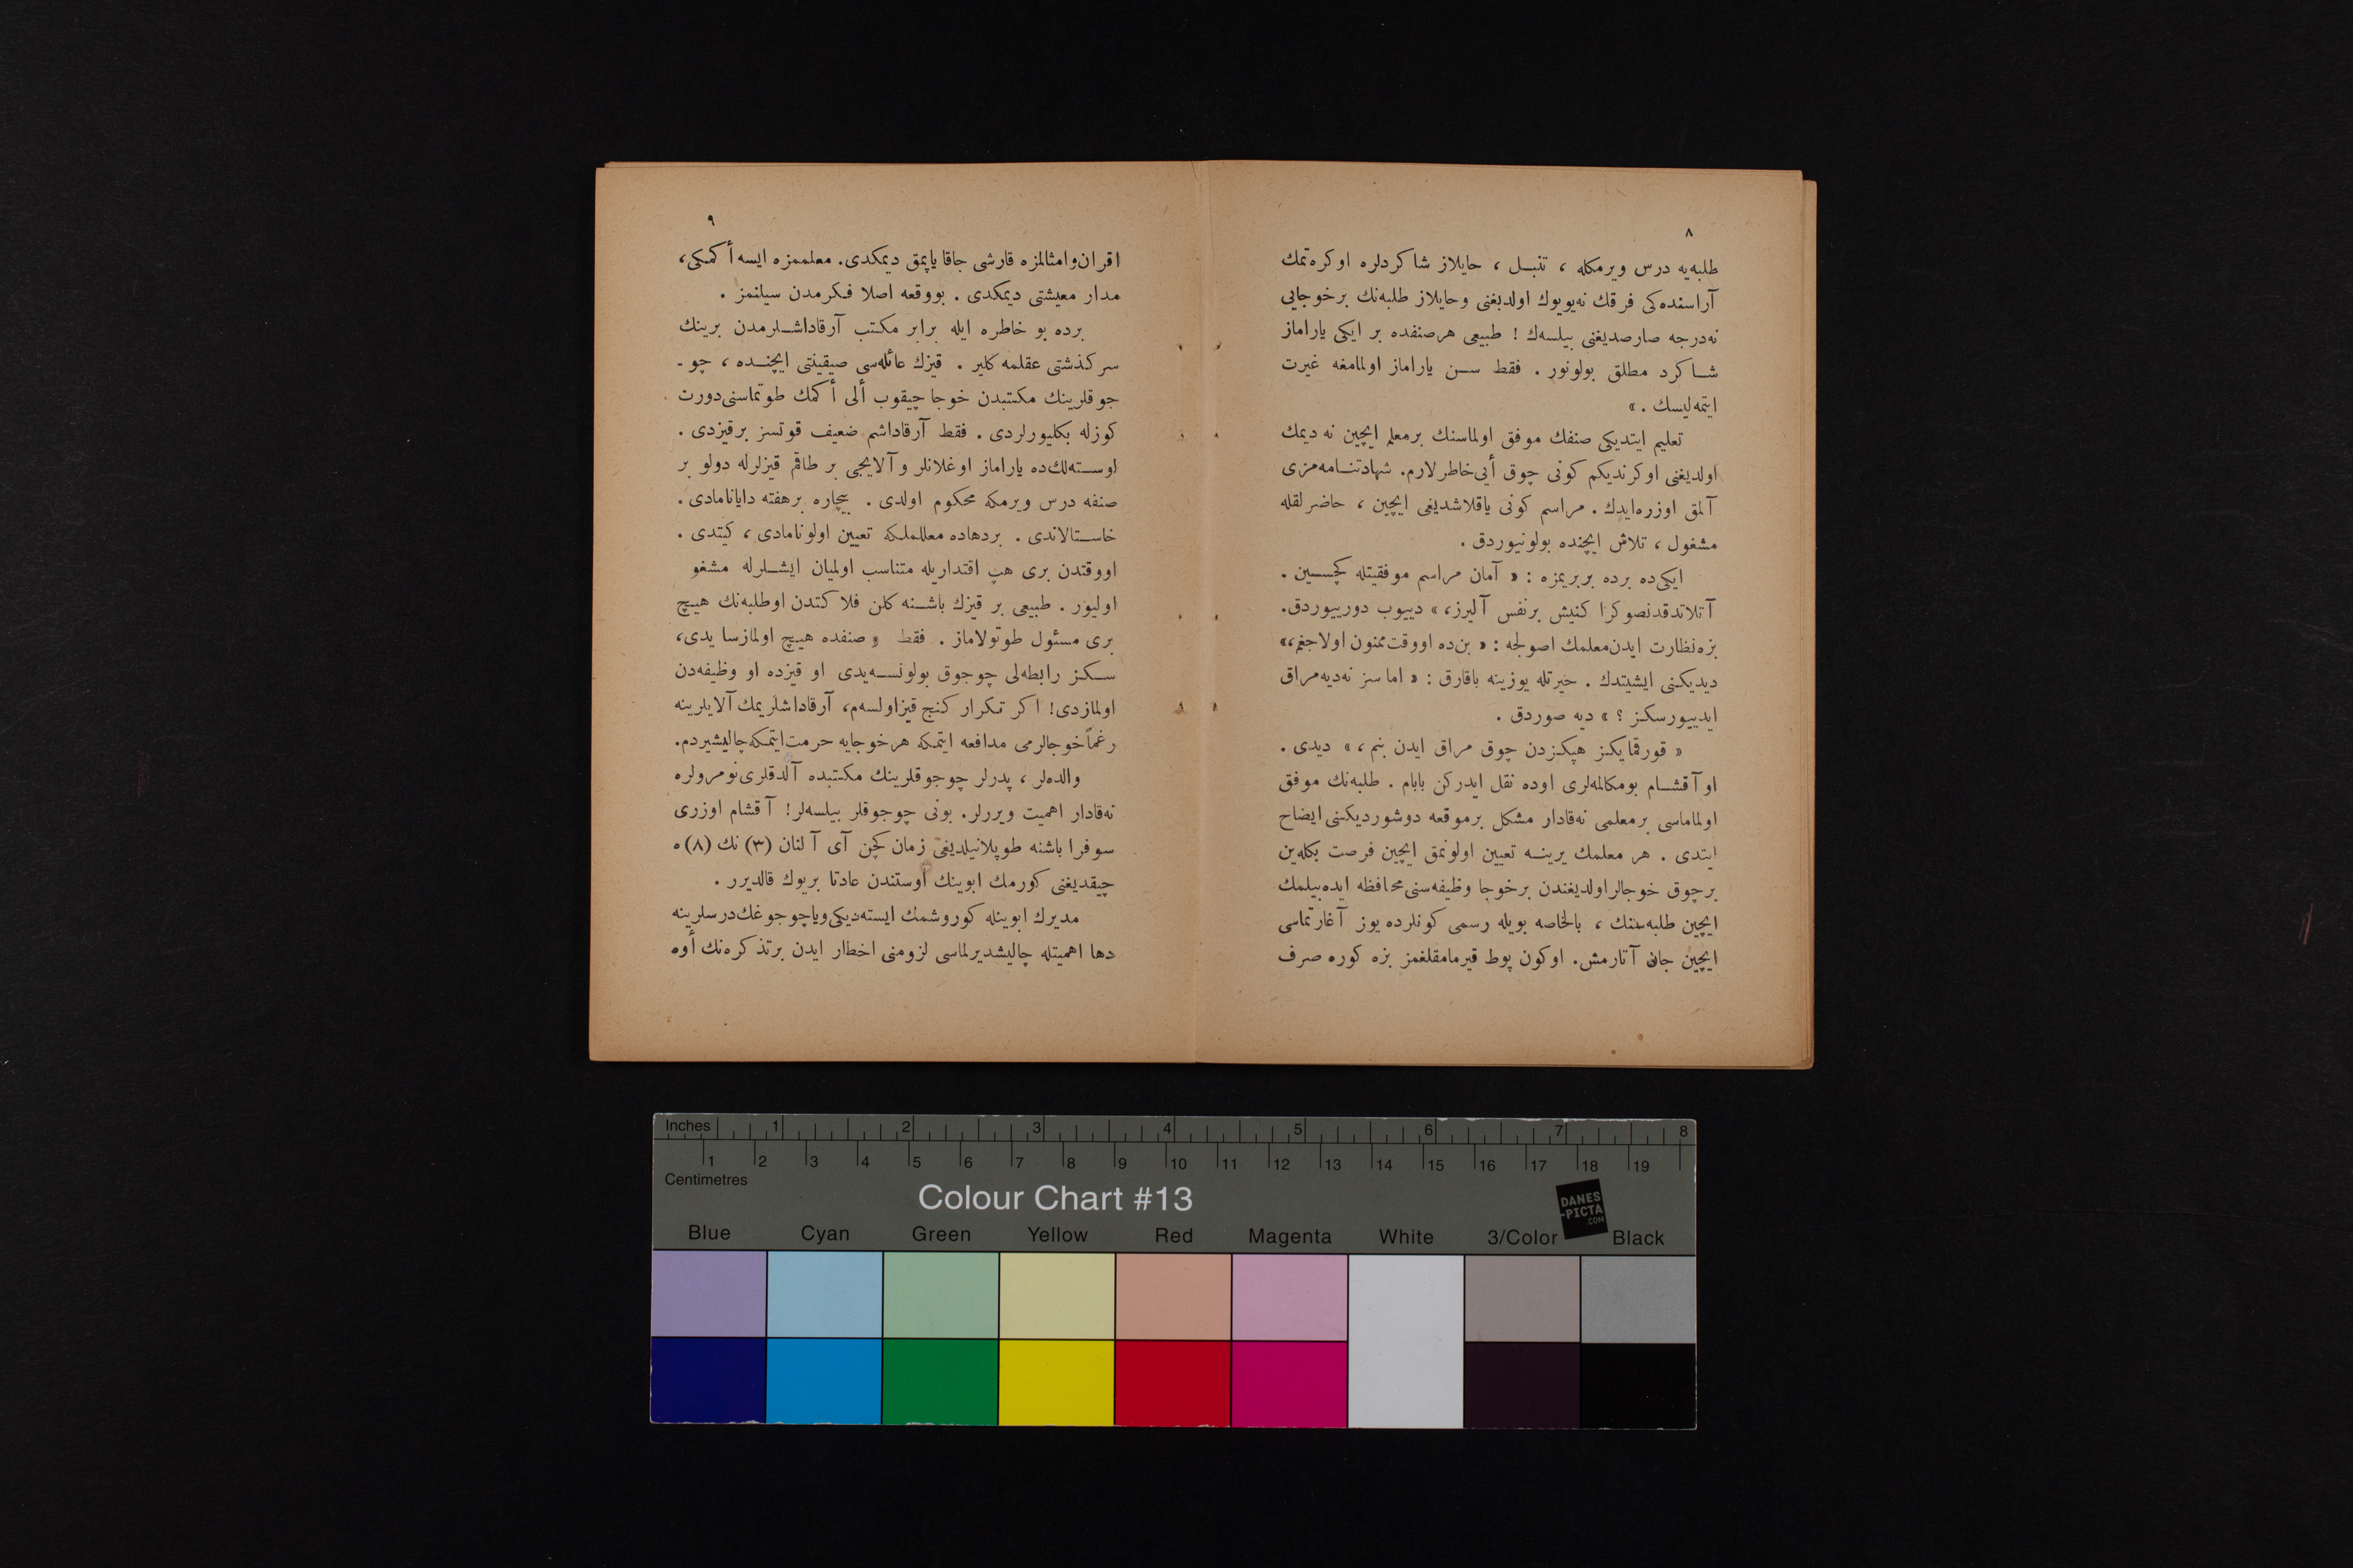 ٨
طلبه‌یه درس ویرمکله ، تنبـل ، حایلاز شاکردلره اوکره‌تمك
آراسنده‌کی فرقك نه‌بویوك اولدیغنی وحایلاز طلبه‌نك برخوجایی
نه‌درجه صارصدیغنی بیلسه‌ك ! طبیعی هرصنفده بر ایکی یاراماز
شـاکرد مطلق بولونور . فقط سـن یاراماز اولمامغه غیرت
ایتمه‌لیسك . »
تعلیم ایتدیکی صنفك موفق اولماسنك برمعلم ایچین نه دیمك
اولدیغنی اوکرندیکم کونی چوق أیی‌خاطرلارم. شهادتنـامه‌مزی
آلمق اوزره‌ایدك . مراسم کونی یاقلاشدیغی ایچین ، حاضرلقله
مشغول ، تلاش ایچنده بولونیوردق .
ایکی‌ده برده بربریمزه : « آمان مراسم موفقیتله کچسـین .
آتلاتدقدنصوکرا کنیش برنفس آلیرز، » دییوب دورییوردق.
بزه‌نظارت ایدن‌معلمك اصولجه : « بن‌ده اووقت‌ممنون اولاجغم،»
دیدیکنی ایشیتدك . حیرتله یوزینه باقارق : « اما سز نه‌دیه‌مراق
ایدییورسکز ؟ » دیه صوردق .
« قورقمایکز هپکزدن چوق مراق ایدن بنم ، » دیدی .
او آقشـام بومکالمه‌لری اوده نقل ایدرکن بابام . طلبه‌نك موفق
اولماماسی برمعلمی نه‌قادار مشکل برموقعه دوشوردیکنی ایضاح
ایتدی . هر معلمك یرینـه تعیین اولونمق ایچین فرصت بکله‌ین
برچوق خوجالراولدیغندن برخوجا وظیفه‌سنی‌محافظه ایده‌بیلمك
ایچین طلبه‌سنك ، بالخاصه بویله رسمی کونلرده یوز آغارتماسی
ایچین جان آتارمش. اوکون پوط قیرمامقلغمز بزه کوره صرف
٩
اقران‌وامثالمزه قارشی جاقا یاپمق دیمکدی. معلممزه ایسه أکمکی،
مدار معیشتی دیمکدی . بووقعه اصلا فـکرمدن سیلنمز .
برده بو خاطره ایله برابر مکتب آرقاداشـلرمدن برینك
سرکذشتی عقلمه کلیر . قیزك عائله‌سی صیقینتی ایچنـده ، چو -
جوقلرینك مکتبدن خوجا چیقوب ألی أکمك طوتماسنی‌دورت
کوزله بکلیورلردی . فقط آرقاداشم ضعیف قوتسز برقیزدی .
اوسـته‌لك‌ده یاراماز اوغلانلر و آلایجی بر طاقم قیزلرله دولو بر
صنفه درس ویرمکه محکوم اولدی . بیچاره برهفته دایانامادی .
خاسـتالاندی . بردهاده معلملمکه تعیین اولونامادی ، کیتدی .
اووقتدن بری هپ اقتداریله متناسب اولمیان ایشـلرله مشغو
اولیور . طبیعی بر قیزك باشـنه کلن فلاکتدن اوطلبه‌نك هیـچ
بری مسئول طوتولاماز . فقط « صنفده هیـچ اولمازسا یدی،
سـکـز رابطه‌لی چوجوق بولونسـه‌یدی او قیزده او وظیفه‌دن
اولمازدی! اکر تکرار کنج قیزاولسه‌م، آرقاداشلریمك آلایلرینه
رغماً خوجالرمی مدافعه ایتمکه هرخوجایه حرمت‌ایتمکه‌چالیشیردم.
والده‌لر ، پدرلر چوجوقلرینك مکـتبده آلدقلری‌نومرولره
نه‌قادار اهمیت ویررلر. بونی چوجوقلر بیلسه‌لر! آقشام اوزری
سوفرا باشنه طوپلانیلدیغی زمان کچن آی آلنان (٣) نك (٨) ه
چیقدیغنی کورمك ابوینك اوستندن عادتا بریوك قالدیرر .
مدیرك ابوینله کوروشمك ایسته‌دیکی‌ویاچوجوغك‌درسلرینه
دها اهمیتله چالیشدیرلماسی لزومنی اخطار ایدن برتذکره‌نك أوه
Inches 1 2 3 4 5 6 7 8
1 2 3 4 5 6 7 8 9 10 11 12 13 14 15 16 17 18 19
Centimetres
Colour Chart #13
DANES
-PICTA
.COM
Blue Cyan Green Yellow Red Magenta White 3/Color Black